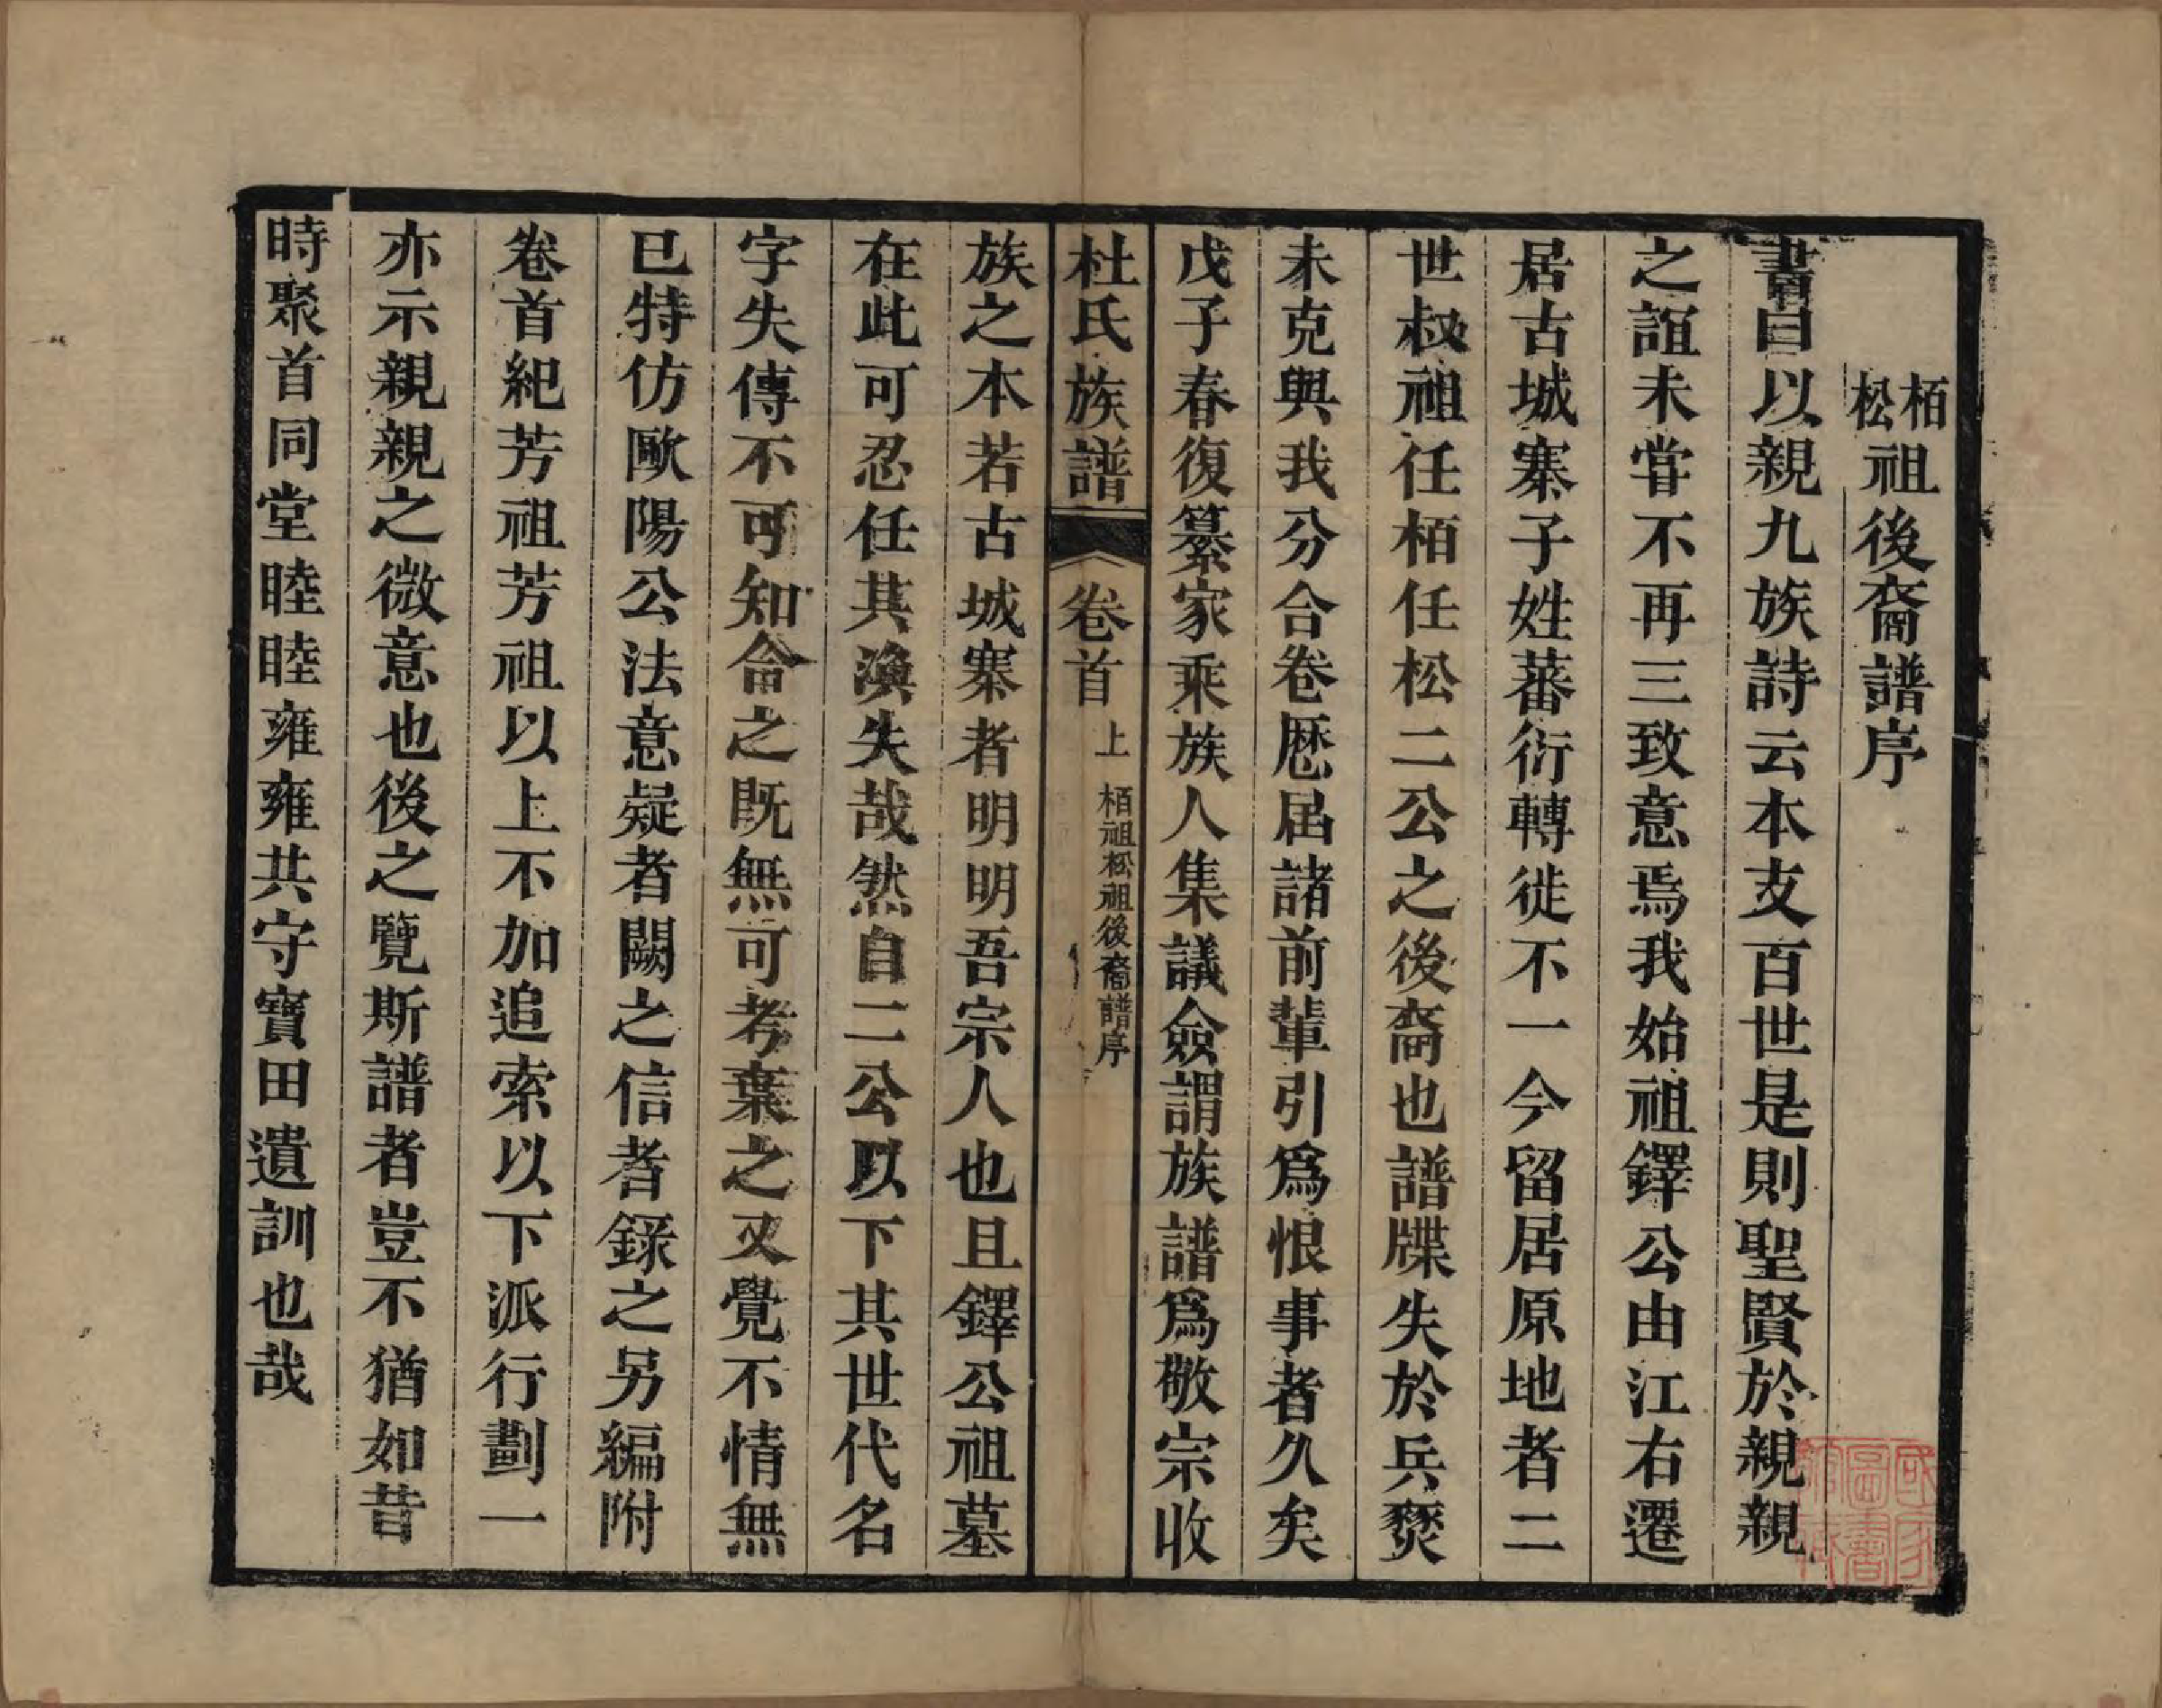 栢松祖後裔譜序
書曰以親九族詩云本支百世是則聖賢於親親
之誼未甞不再三致意焉我始祖鐸公由江右遷
居古城寨子姓蕃衍轉徙不一今留居原地者二
世叔祖任栢任松二公之後裔也譜牒失於兵燹
未克與我分合卷歷屆諸前輩引爲恨事者久矣
戊子春復纂家乘族人集議僉謂族譜爲敬宗收
杜氏族譜 卷首 上 栢祖松祖後裔譜序
族之本若古城寨者明明吾宗人也且鐸公祖墓
在此可忍任其渙失哉然自二公以下其世代名
字失傳不可知侖之既無可考棄之又覺不情無
已特仿歐陽公法意疑者闕之信者錄之另編附
卷首紀芳祖芳祖以上不加追索以下派行劃一
亦示親親之微意也後之覽斯譜者豈不猶如昔
時聚首同堂睦睦雍雍共守寶田遺訓也哉
國家圖書館藏